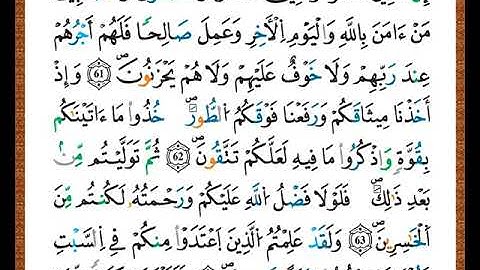 مَنْ ءَامَنَ بِاللَّهِ وَالْيَوْمِ اِ۬لْأَخِرِ وَعَمِلَ صَٰلِحًا فَلَهُمْ أَجْرُهُمْ
عِندَ رَبِّهِمْ وَلَا خَوْفٌ عَلَيْهِمْ وَلَا هُمْ يَحْزَنُونَۖ 61 وَإِذْ
أَخَذْنَا مِيثَٰقَكُمْ وَرَفَعْنَا فَوْقَكُمُ اُ۬لطُّورَۖ خُذُوا مَا ءَاتَيْنَٰكُم
بِقُوَّةٍ وَاذْكُرُوا مَا فِيهِ لَعَلَّكُمْ تَتَّقُونَۖ 62 ثُمَّ تَوَلَّيْتُم مِّنۢ
بَعْدِ ذَٰلِكَۖ فَلَوْلَا فَضْلُ اُ۬للَّهِ عَلَيْكُمْ وَرَحْمَتُهُۥ لَكُنتُم مِّنَ
اَ۬لْخَٰسِرِينَۖ 63 وَلَقَدْ عَلِمْتُمُ اُ۬لَّذِينَ اَ۪عْتَدَوْا مِنكُمْ فِے اِ۬لسَّبْتِ